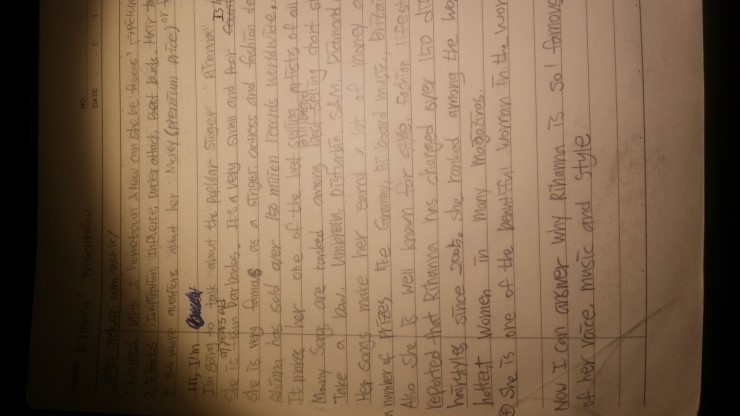 NO.
DATE
& hometown & How can she be famous?
Influence, under attack, Best duels, Hair
more questions about her Money (premium price) or
Hi, I'm
I'm going to talk about the popular singer "Rihanna"
She is from Barbados. It's a very small and poor
She is very famous as a singer, actress and fashion de
has sold over 150 million records worldwide.
It makes her one of the best selling artists of all
Many Song are ranked among best-selling chart s
Take a bow, Umbrella, Disturbia, S&M, Diamond
Her songs make her earn a lot of money a
number of prizes like Grammy, Billboard music,
Also she is well known for style, fashion lifest
reported that Rihanna has changed over 150 di
hairstyles since 2005. She ranked among the wo
hottest women in many magazines.
She is one of the beautiful woman in the wor
Now I can answer why Rihanna is so! famous
of her voice, music and style